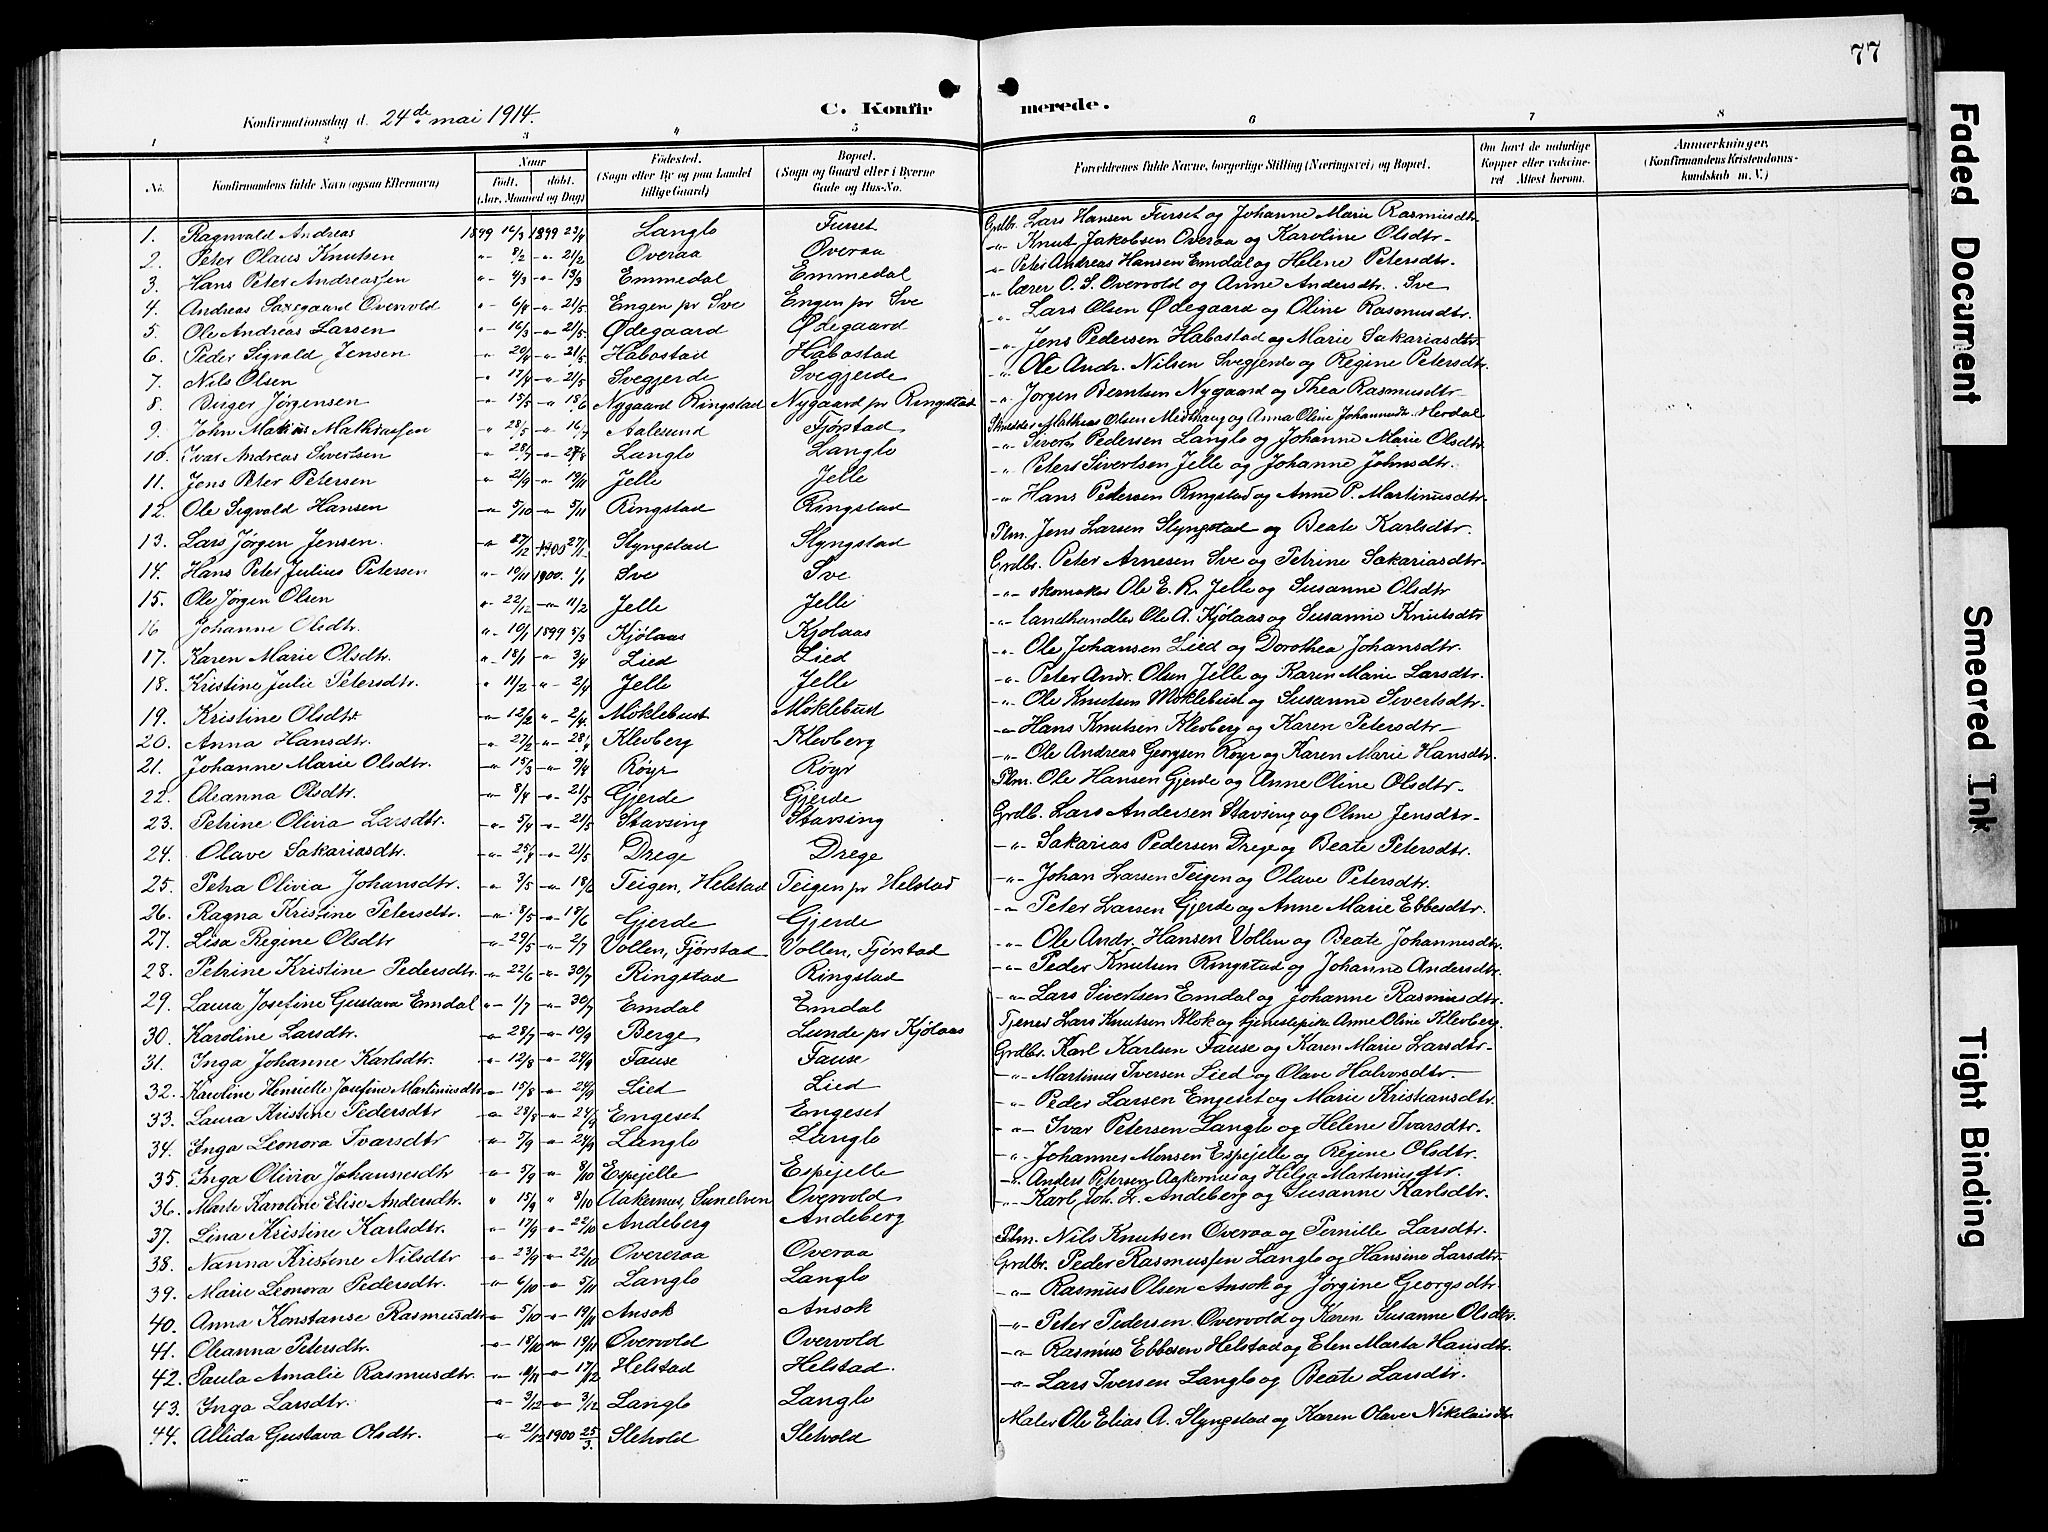 77
Konfirmationsdag d. 24de mai 1914.
C. Konfirmerede.
1 2 3 4 5 6 7 8
No. Konfirmandens fulde Navn (ogsaa Efternavn) Naar Født. døbt. (Aar, Maaned og Dag) Fødested. (Sogn eller By og paa Landet tillige Gaard) Bopæl. (Sogn og Gaard eller i Byerne Gade og Hus-No. Forældrenes fulde Navne, borgerlige Stilling (Næringsvei) og Bopæl. Om havt de naturlige Kopper eller vaccineret. Attest herom. Anmærkninger. (Konfirmandens Kristendomskundskab m. V.)
1. Ragnvald Andreas 1899 16/3 1899 23/4 Langlo Furset Grdbr. Lars Hansen Furset og Johanne Marie Rasmusdtr
2. Peter Olaus Knutsen -"- 8/2 -"- 21/2 Overaa Overaa -"- Knut Jakobsen Overaa og Karoline Olsdtr-
3. Hans Peter Andreassen -"- 4/3 -"- 19/3 Emmedal Emmedal -"- Peter Andreas Hansen Emdal og Helene Petersdtr.
4. Andreas Saxegaard Overvold " 6/4 -"- 21/5 Engen pr Sve Engen pr Sve -"- lærer O. S. Overvold og Anne Andersdtr. Sve
5. Ole Andreas Larsen -"- 16/3 -"- 21/5 Ødegaard Ødegaard -"- Lars Olsen Ødegaard og Oline Rasmusdtr.
6. Peder Sigvald Jensen " 20/4 -"- 21/5 Habostad Habostad -"- Jens Pedersen Habostad og Marie Sakariasdtr
7. Nils Olsen " 17/4 -"- 21/5 Svegjerde Svegjerde -"- Ole Andr. Nilsen Svegjerde og Regine Petersdtr.
8. Birger Jørgensen " 15/5 -"- 18/6 Nygaard Ringstad Nygaard pr Ringstad -"- Jørgen Berntsen Nygaard og Thea Rasmusdtr-
9. John Mathias Mathiassen " 28/5 -"- 16/7 Aalesund Fjørstad Skrædder Mathias Olsen Medthaug og Anna Oline Johannesdtr. Herdal
10. Ivar Andreas Sivertsen " 28/7 -"- 27/8 Langlo Langlo -"- Sivert Pedersen Langlo og Johanne Marie Olsdtr.
11. Jens Peter Petersen -"- 2/9 -"- 19/11 Jelle Jelle -"- Peter Sivertsen Jelle og Johanne Johnsdtr.
12. Ole Sigvald Hansen -"- 5/10 -"- 5/11 Ringstad Ringstad -"- Hans Pedersen Ringstad og Anne P. Martinusdtr.
13. Lars Jørgen Jensen. -"- 27/12 1900 27/1 Slyngstad Slyngstad Plm. Jens Larsen Slyngstad og Beate Karlsdtr.
14. Hans Peter Julius Petersen " 19/11 1900. 1/1 Sve Sve Grdbr. Peter Arnesen Sve og Petrine Sakariasdtr.
15. Ole Jørgen Olsen " 22/12 -"- 11/2 Jelle Jelle -"- skomaker Ole E. R. Jelle og Susanne Olsdtr
16 Johanne Olsdtr. " 10/1 1899 5/3 Kjølaas Kjølaas -"- landhandler Ole A. Kjølaas og Susanne Knutsdtr
17. Karen Marie Olsdtr. " 18/1 -"- 3/4 Lied Lied -"- Ole Johansen Lied og Dorothea Johansdtr.
18. Kristine Julie Petersdtr. " 11/2 " 2/4 Jelle Jelle -"- Peter Andr. Olsen Jelle og Karen Marie Larsdtr.
19. Kristine Olsdtr -"- 12/2 " 2/4. Møklebust Møklebust -"- Ole Knutsen Møklebust og Susanne Sivertsdtr.
20. Anna Hansdtr. -"- 27/2 -"- 28/4 Klevberg Klevberg -"- Hans Knutsen Klevberg og Karen Petersdtr-
21. Johanne Marie Olsdtr. -"- 15/3 -"- 9/4 Røyr Røyr -"- Ole Andreas Georgsen Røyr og Karen Marie Hansdtr.
22. Oleanna Olsdtr. -"- 8/4 -"- 21/5 Gjerde Gjerde Plm. Ole Hansen Gjerde og Anne Oline Olsdtr-
23. Petrine Olivia Larsdtr. -"- 5/4 -"- 21/5 Stavsing Stavsing Grdbr. Lars Andersen Stavsing og Oline Jensdtr-
24. Olave Sakariasdtr. -"- 25/4 -"- 21/5 Drege Drege -"- Sakarias Pedersen Drege og Beate Petersdtr.
25. Petra Olivia Johansdtr. -"- 3/5 -"- 18/6 Teigen, Helstad Teigen pr Helstad -"- Johan Larsen Teigen og Olave Petersdtr.
26. Ragna Kristine Petersdtr. -"- 8/5 -"- 18/6 Gjerde Gjerde -"- Peter Larsen Gjerde og Anne Marie Ebbesdtr.
27. Lisa Regine Olsdtr -"- 29/5 -"- 2/7 Vollen, Fjørstad Vollen, Fjørstad -"- Ole Andr. Hansen Vollen og Beate Johannesdtr.
28. Petrine Kristine Pedersdtr. -"- 22/6 -"- 30/7 Ringstad Ringstad -"- Peder Knutsen Ringstad og Johanne Andersdtr.
29. Laura Josefine Gustava Emdal " 1/7 -"- 30/7 Emdal Emdal -"- Lars Sivertsen Emdal og Johanne Rasmusdtr.
30. Karoline Larsdtr. -"- 28/7 -"- 10/9 Berge Lunde pr Kjølaas Tjener Lars Knutsen Klok og tjenestepike Anne Oline Klevberg.
31. Inga Johanne Karlsdtr. -"- 12/8 -"- 24/9 Fause Fause Grdbr. Karl Karlsen Fause og Karen Marie Larsdtr-
32. Karoline Henriette Josefine Martinusdtr -"- 15/8 -"- 24/9 Lied Lied -"- Martinus Iversen Lied og Olave Halvorsdtr-
33. Laura Kristine Pedersdtr -"- 28/8 -"- 24/9 Engeset Engeset -"- Peder Larsen Engeset og Marie Kristiansdtr.
34. Inga Leonora Ivarsdtr -"- 5/9 -"- 24/9 Langlo Langlo -"- Ivar Petersen Langlo og Helene Ivarsdtr.
35. Inga Olivia Johannesdtr -"- 5/9 -"- 8/10 Espejelle Espejelle -"- Johannes Monsen Espejelle og Regine Olsdtr.
36. Marte Karoline Elise Andersdtr. " 15/9 " 8/10 Aakernus, Sunelven Overvold -"- Anders Petersen Aakernus og Helga Martinusdtr.
37. Lina Kristine Karlsdtr. -"- 17/9 -"- 22/10 Andeberg Andeberg -"- Karl Joh. L. Andeberg og Susanne Karlsdtr.
38. Nanna Kristine Nilsdtr -"- 23/9 -"- 22/10 Overeraa Overaa Plm. Nils Knutsen Overaa og Pernille Larsdtr.
39. Marie Leonora Pedersdtr. -"- 6/10 -"- 5/11 Langlo Langlo Grdbr. Peder Rasmussen Langlo og Hansine Larsdtr-
40. Anna Konstanse Rasmusdtr -"- 5/10 -"- 19/11 Ansok Ansok -"- Rasmus Olsen Ansok og Jørgine Georgsdtr.
41. Oleanna Petersdtr. -"- 18/10 -"- 19/11 Overvold Overvold -"- Peter Pedersen Overvold og Karen Susanne Olsdtr.
42. Paula Amalie Rasmusdtr. -"- 11/11 -"- 17/12 Helstad Helstad. -"- Rasmus Ebbesen Helstad og Elen Marta Hansdtr.
43. Inga Larsdtr. -"- 3/12 -"- 3/12 Langlo Langlo -"- Lars Iversen Langlo og Beate Larsdtr.
44. Allida Gustava Olsdtr. " 2/12 1900 25/3 Slehold Slehold Maler Ole Elias A. Slyngstad og Karen Olave Nikolaisdtr
Faded Document
Smeared Ink
Tight Binding